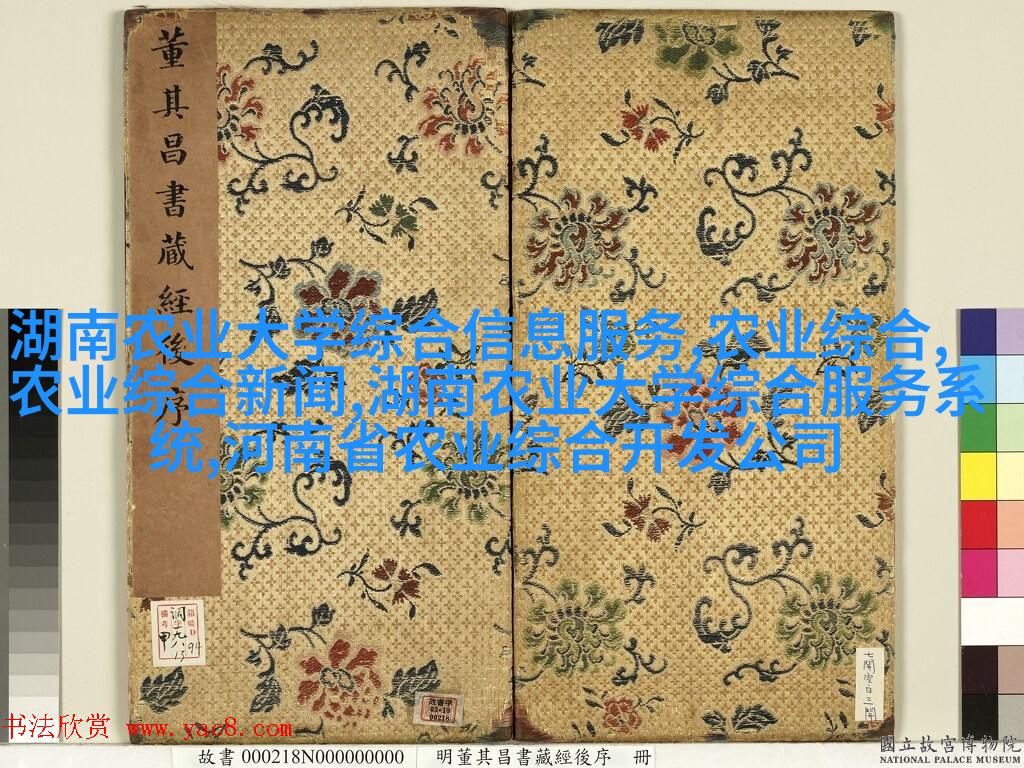 董其昌書藏經後序
湖南农业大学综合信息服务,农业综合,
农业综合新闻,湖南农业大学综合服务系
统,河南省农业综合开发公司
故書甲
03-10
00218
七開空白三開
书法欣赏 www.yac8.com
故書 000218N000000000
明董其昌書藏經後序 冊
國立故宮博物院
NATIONAL PALACE MUSEUM